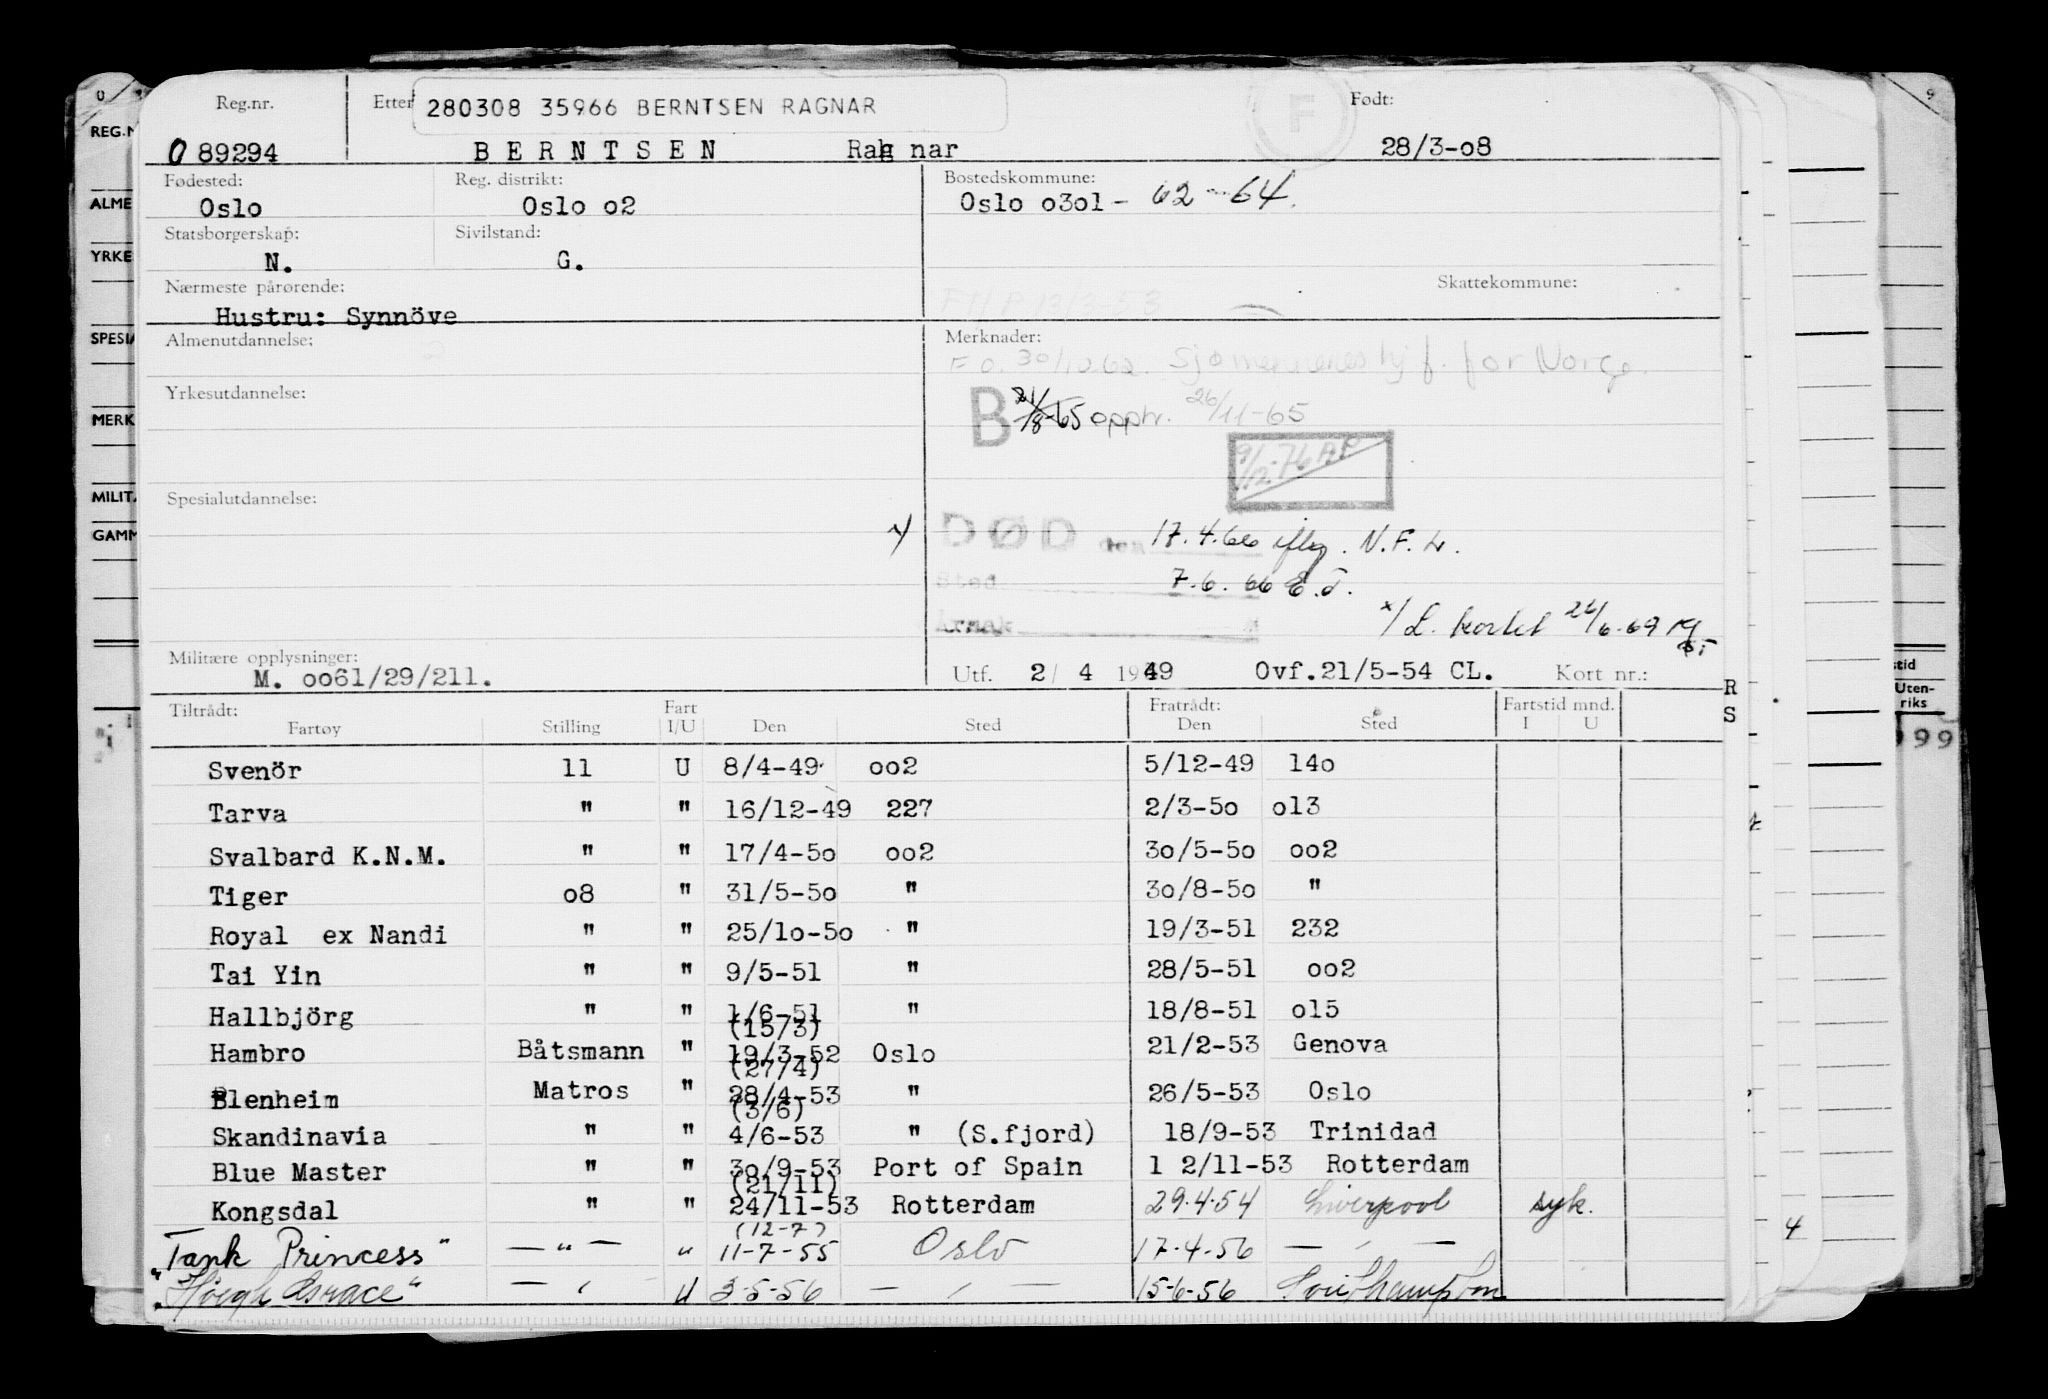 Reg.nr. Etter 280308 35966 BERNTSEN RAGNAR F Født:
089294 BERNTSEN Ragnar 28/3-08
Fødested: Reg. distrikt: Bostedskommune:
Oslo Oslo o2 Oslo o3ol - 62-64.
Statsborgerskap: Sivilstand:
N. G.
Nærmeste pårørende: Skattekommune:
Hustru: Synnöve
Almenutdannelse: Merknader:
F.O. 30/10 62. Sjømennenes hj f. for Norge.
Yrkesutdannelse:
B 21/8-65 opphr. 26/11-65
9/12-76 AP
Spesialutdannelse:
x) DØD den 17.4.66 iflg. N.F.L.
Sted 7.6.66 E.J.
Årsak
x/ L. kortet 26/6-69
Militære opplysninger:
M. oo61/29/211. Utf. 2/ 4 1949 Ovf.21/5-54 CL. Kort nr.:
Tiltrådt: Fart Fratrådt: Fartstid mnd.
Fartøy Stilling I/U Den Sted Den Sted I U
Svenör 11 U 8/4-49 oo2 5/12-49 14o
Tarva " " 16/12-49 227 2/3-5o o13
Svalbard K.N.M. " " 17/4-5o oo2 3o/5-5o oo2
Tiger o8 " 31/5-5o " 3o/8-5o "
Royal ex Nandi " " 25/1o-5o " 19/3-51 232
Tai Yin " " 9/5-51 " 28/5-51 oo2
Hallbjörg " " 1/6-51 " 18/8-51 o15
(15/3)
Hambro Båtsmann " 19/3-52 Oslo 21/2-53 Genova
(27/4)
Blenheim Matros " 28/4-53 " 26/5-53 Oslo
(3/6)
Skandinavia " " 4/6-53 " (S.fjord) 18/9-53 Trinidad
Blue Master " " 3o/9-53 Port of Spain 1 2/11-53 Rotterdam
(21/11)
Kongsdal " " 24/11-53 Rotterdam 29.4.54 Liverpool syk.
(12-7)
"Tank Princess" — " — " 11-7-55 Oslo 17.4.56 — , —
"Høegh Grace" — , — U 3-5-56 — , — 15-6-56 Southampton
REG.N
ALME
YRKE
SPESIA
MERK
MILITÆ
GAMM
R
S
stid
Uten-
riks
99
4
9
0